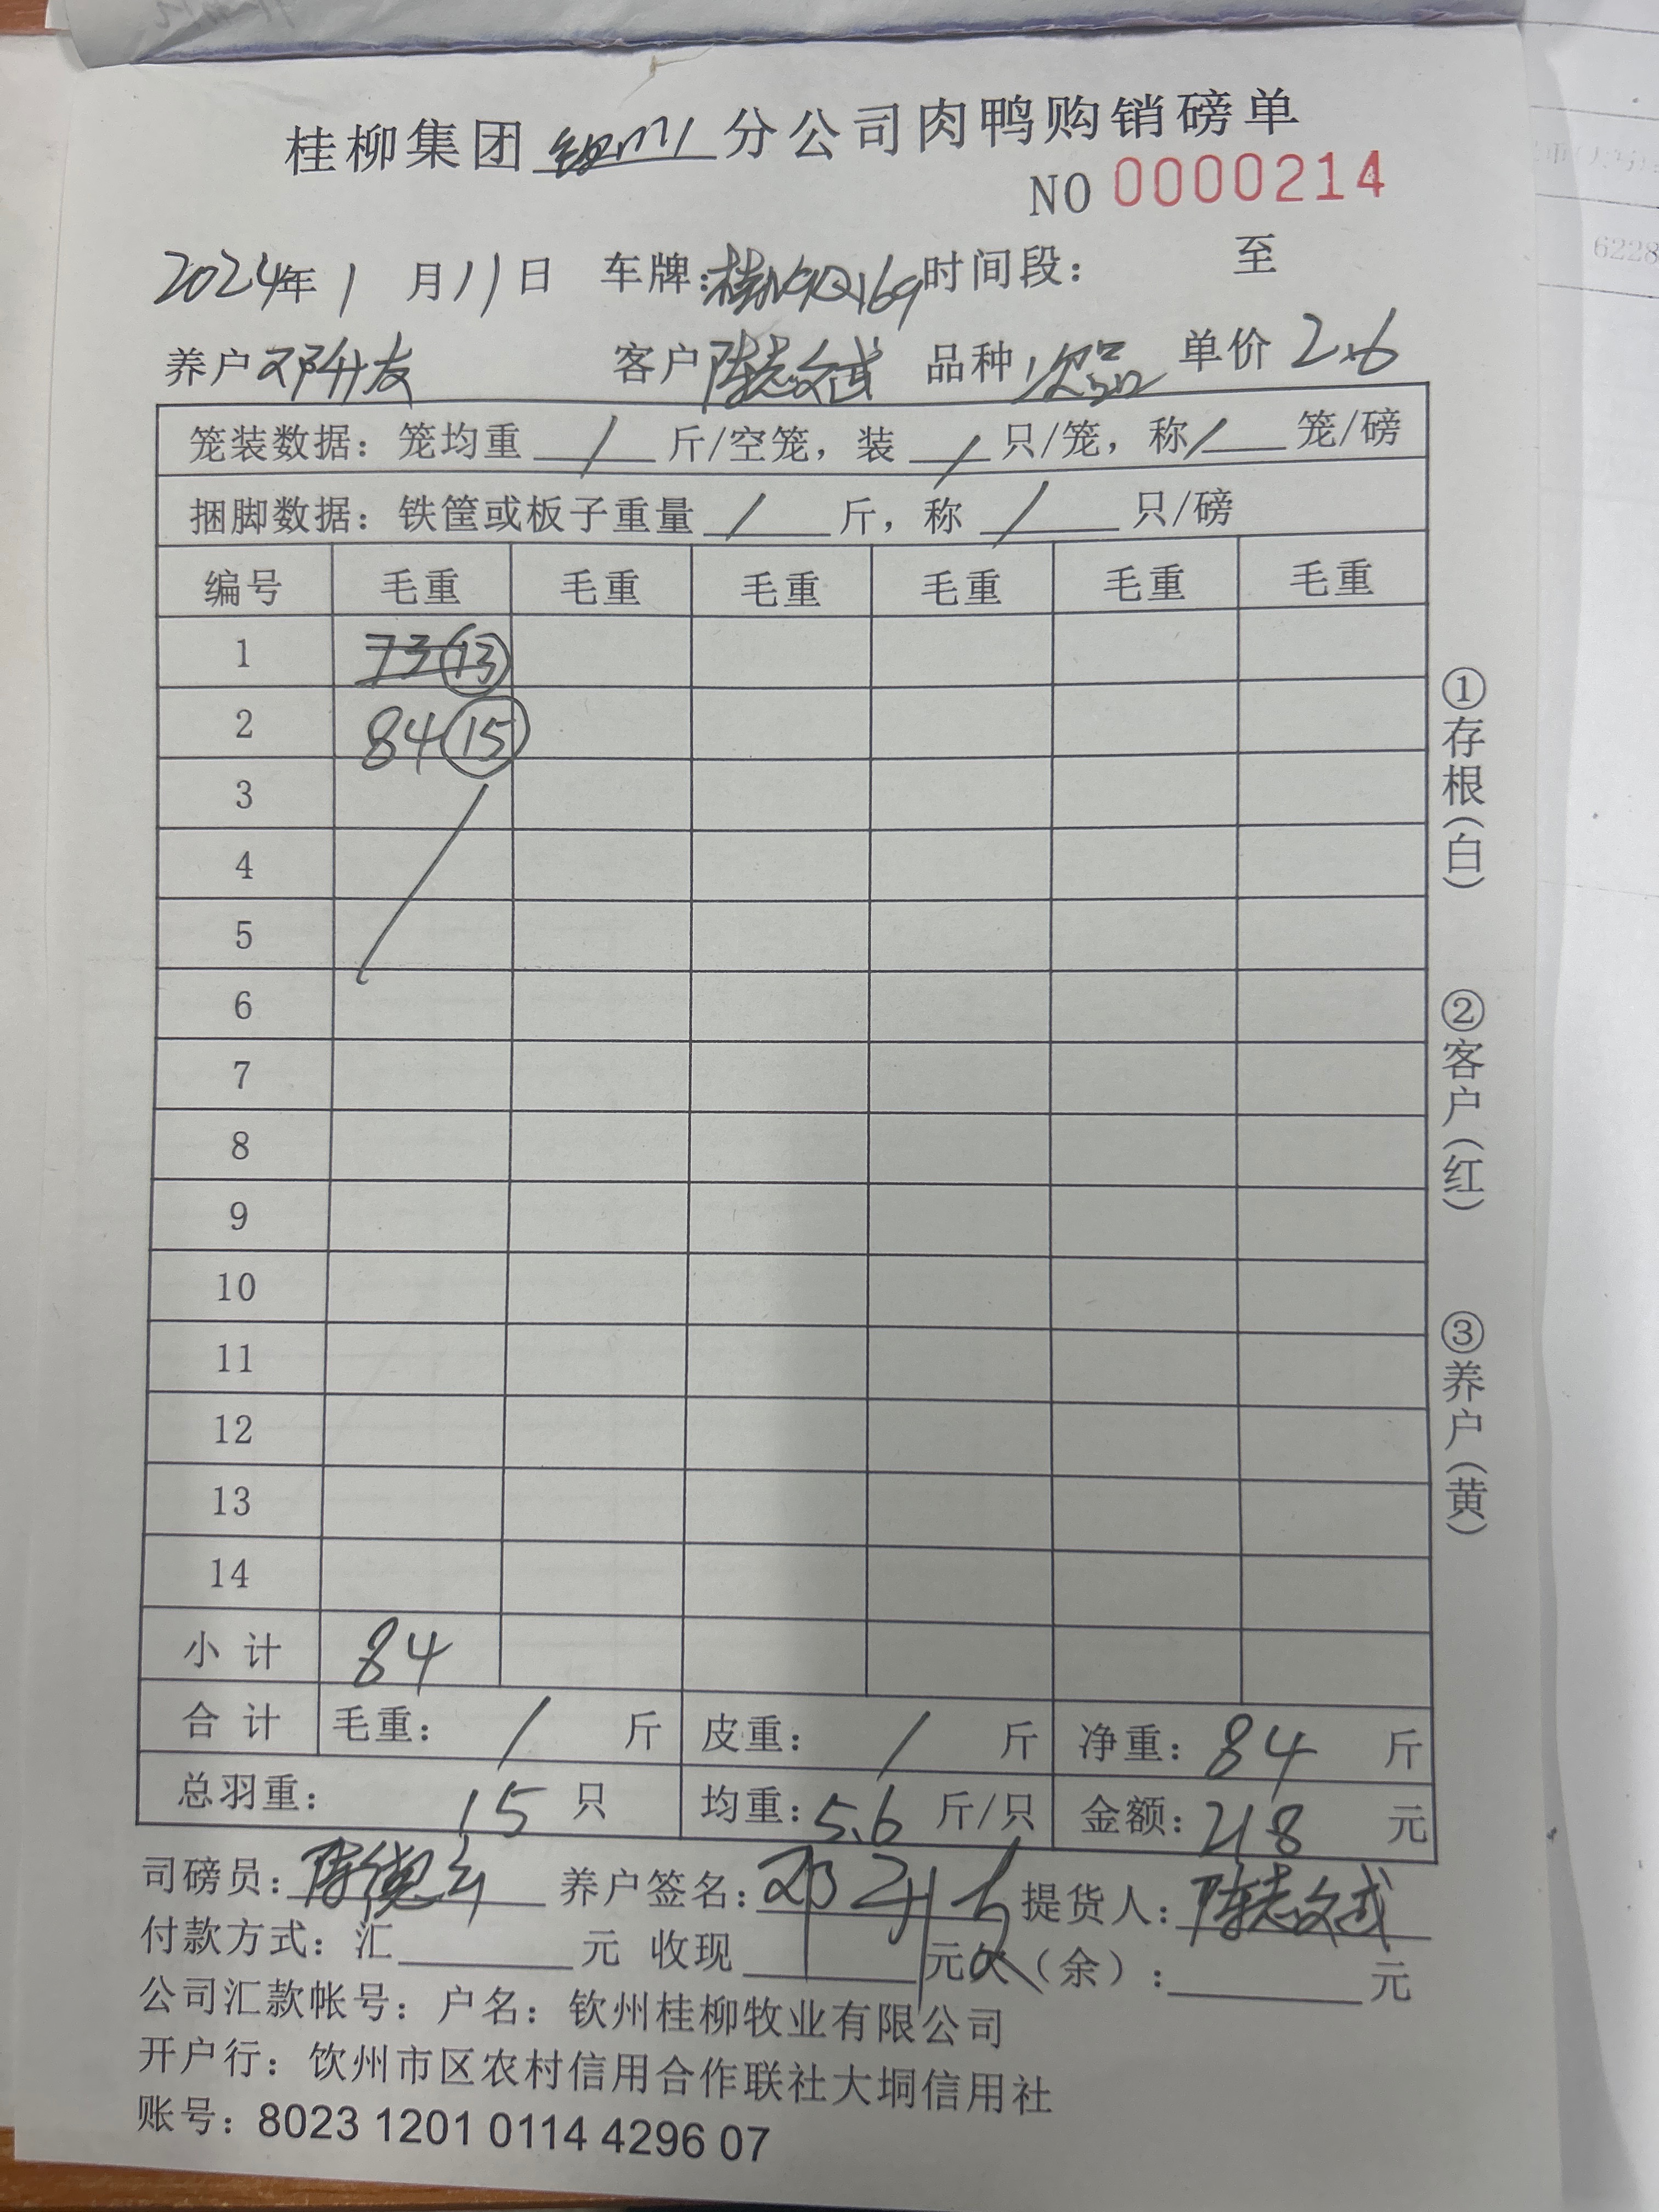 桂柳集团 钦州 分公司肉鸭购销磅单
NO 0000214
2024年 1 月 11 日 车牌: 时间段: 至
养户 邓升友 客户 陈志斌 品种 次品 单价 2.6
笼装数据: 笼均重 / 斤/空笼, 装 / 只/笼, 称 / 笼/磅
捆脚数据: 铁筐或板子重量 / 斤, 称 / 只/磅
编号 毛重 毛重 毛重 毛重 毛重 毛重
1 73 13
2 84 15
3
4
5
6
7
8
9
10
11
12
13
14
小计 84
合计 毛重: / 斤 皮重: / 斤 净重: 84 斤
总羽重: 15 只 均重: 5.6 斤/只 金额: 218 元
司磅员: 养户签名: 邓升友 提货人: 陈志斌
付款方式: 汇 元 收现 元欠(余): 元
公司汇款帐号: 户名: 钦州桂柳牧业有限公司
开户行: 钦州市区农村信用合作联社大垌信用社
账号: 8023 1201 0114 4296 07
①存根(白)
②客户(红)
③养户(黄)
6228